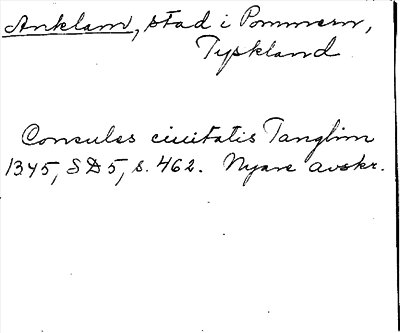 Anklam, stad i Pommern,
Tyskland
Consules ciuitatis Tanglim
1345, SD 5, s. 462. Nyare avskr.